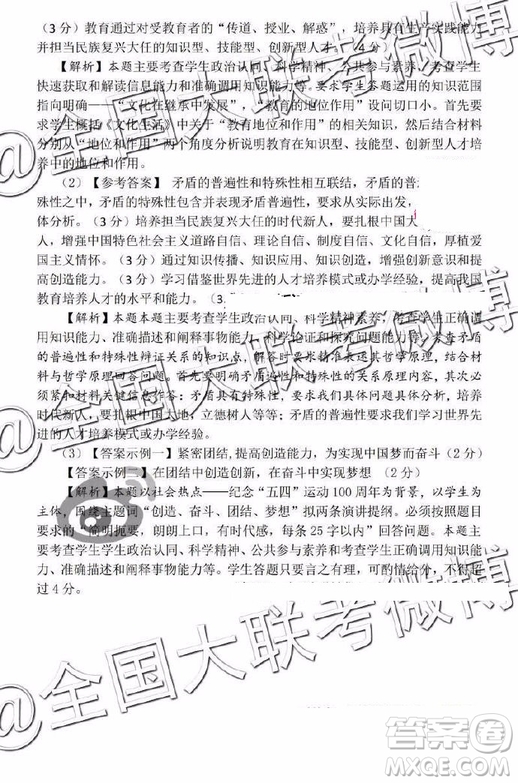 （3 分）教育通过对受教育者的“传道、授业、解惑”，培养具有生产实践能力
并担当民族复兴大任的知识型、技能型、创新型人才。（4 分）
【解析】本题主要考查学生政治认同、科学精神、公共参与素养，考查学生
快速获取和解读信息能力和准确调用知识的能力。要求学生答题运用的知识范围
指向明确——“文化在继承中发展”，“教育的地位和作用”设问切口小。首先要
求学生概括《文化生活》中关于“教育地位和作用”的知识点，然后结合材料
分别从“地位和作用”两个角度分析说明教育在知识型、技能型、创新型人才
中的地位和作用。
（2）【参考答案】 矛盾的普遍性和特殊性相互联结，矛盾的普
殊性之中，矛盾的特殊性包含并表现矛盾的普遍性，要求从实际出发，
体分析。（3 分）培养担当民族复兴大任的时代新人，要扎根中国大
人，增强中国特色社会主义道路自信、理论自信、制度自信、文化自信，厚植爱
国主义情怀。（3 分）通过知识传播、知识应用、知识创造，增强创新意识和提
高创造能力。（3 分）学习借鉴世界先进的人才培养模式或办学经验，提高我国
教育培养人才的水平和能力。（3.
【解析】本题本题主要考查学生政治认同、科学精神素养，考查学生正确调
用知识能力、准确描述和阐释事物能力、科学论证和探究问题能力。考查矛盾
的普遍性和特殊性辩证关系的知识点，解答要求结合所学哲学原理，结合材
料与所学原理回答问题。首先要写明矛盾的普遍性和特殊性的关系原理内容，
材料与原理有机结合，即从材料中提取与矛盾的普遍性和特殊性的关系原理
有关的材料关键信息作答；矛盾的特殊性要求我们具体分析具体分析，培养
时代新人，要扎根中国大地、立德树人等等；矛盾的普遍性要求我们学习世界先
进的人才培养模式或办学经验。
（3）【答案示例一】紧密团结，提高创造能力，为实现中国梦而奋斗（2 分）
【答案示例二】在团结中创造创新，在奋斗中实现梦想 （2 分）
【解析】本题以社会热点——纪念“五四”运动 100 周年为背景，以学生为主
体，围绕主题词“创造、奋斗、团结、梦想”拟两条演讲提纲。开放式设问，
要求学生按“简明扼要，朗朗上口，有创意，每条 25 字以内”回答问题。本题主
要考查学生学生政治认同、科学精神、公共参与素养和考查学生正确调用知识能
力、准确描述和阐释事物能力等等。学生答题只要言之有理，可酌情给分，不得超
过 4 分。
@全国大联考微博
@全国大联考微博
@全国大联考微博
答案圈
MXQE.COM